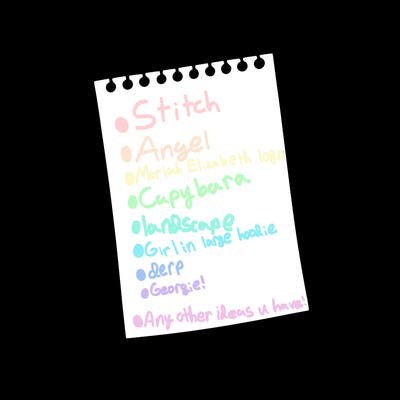 Stitch
Angel
Moriah Elizabeth logo
Capybara
landscape
Girl in large hoodie
derp
Georgie!
Any other ideas u have!